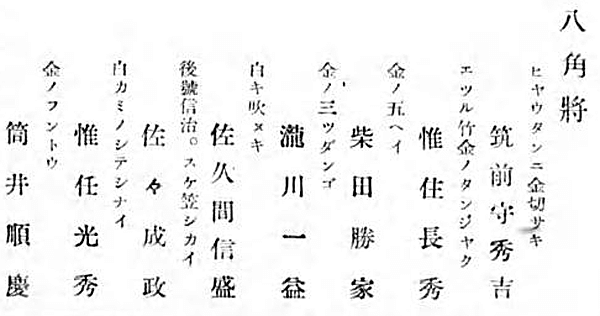 八角將
ヒヤウタンニ金切サキ
筑前守秀吉
エツル竹金ノタンジヤク
惟住長秀
金ノ五ヘイ
柴田勝家
金ノ三ツダンゴ
瀧川一益
白キ吹ヌキ
佐久間信盛
後號信治。スケ笠シカイ
佐々成政
白カミノシテシナイ
惟任光秀
金ノフントウ
筒井順慶